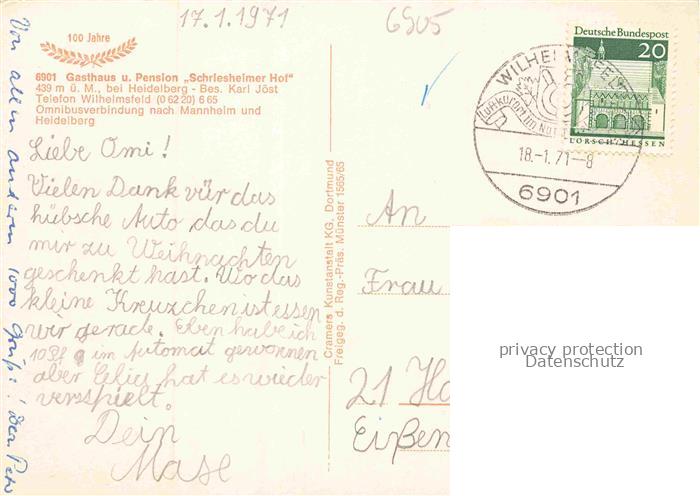 17.1.1971
6905
100 Jahre
6901 Gasthaus u. Pension „Schriesheimer Hof"
439 m ü. M., bei Heidelberg - Bes. Karl Jöst
Telefon Wilhelmsfeld (0 62 20) 6 65
Omnibusverbindung nach Mannheim und
Heidelberg
Liebe Omi!
Vielen Dank vür das
hübsche Auto das du
mir zu Weihnachten
geschenkt hast. Wo das
kleine Kreuzchen ist essen
wir gerade. Eben habe ich
10 Pf im Automat gewonnen
aber hat es wieder
verspielt.
Dein
Von allen anderen 1000 Grüße! Dein Peter
Cramers Kunstanstalt KG. Dortmund
Freigeg. d. Reg.-Präs. Münster 1565/65
Deutsche Bundespost
20
LORSCH/HESSEN
WILHELMSFELD
Luftkurort im
18.-1.71-8
6901
An
Frau
21 Ha
Eißen
privacy protection
Datenschutz